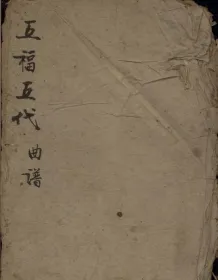 五福五代曲譜